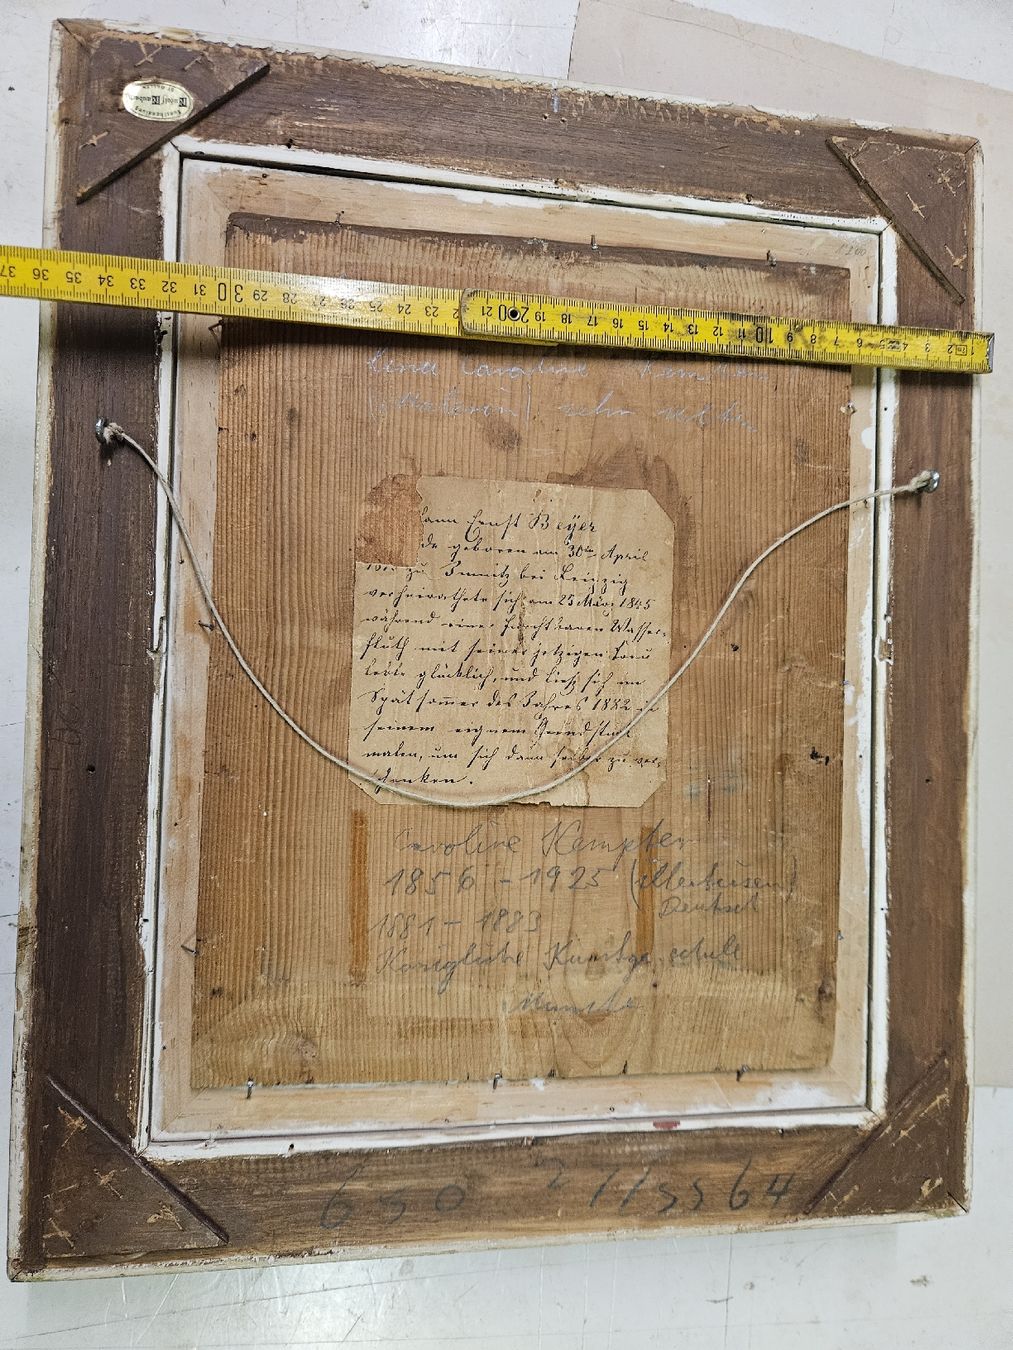 Kunsthandlung
Rudolf
Lena Caroline
(Malerin) sehr selten
Ernst Beyer
geboren am 30ten April
zu bei Leipzig
verheirathete sich am 25 März 1845
während einer furchtbaren Wasser-
fluth mit seiner jetzigen Frau
lebte glücklich, und ließ sich im
Spätsommer des Jahres 1882 in
seinem eignem Grundstück
malen, um sich dann selber zu ver-
schenken.
Caroline Kempter
1856 - 1925 (Illertissen)
Deutsch
1881 - 1883
Königliche Kunstge. schule
München
650 2 / / 55 64
37 36 35 34 33 32 31 30 29 28 27 26 25 24 23 22 21 20 19 18 17 16 15 14 13 12 11 10 9 8 7 6 5 4 3 2 1